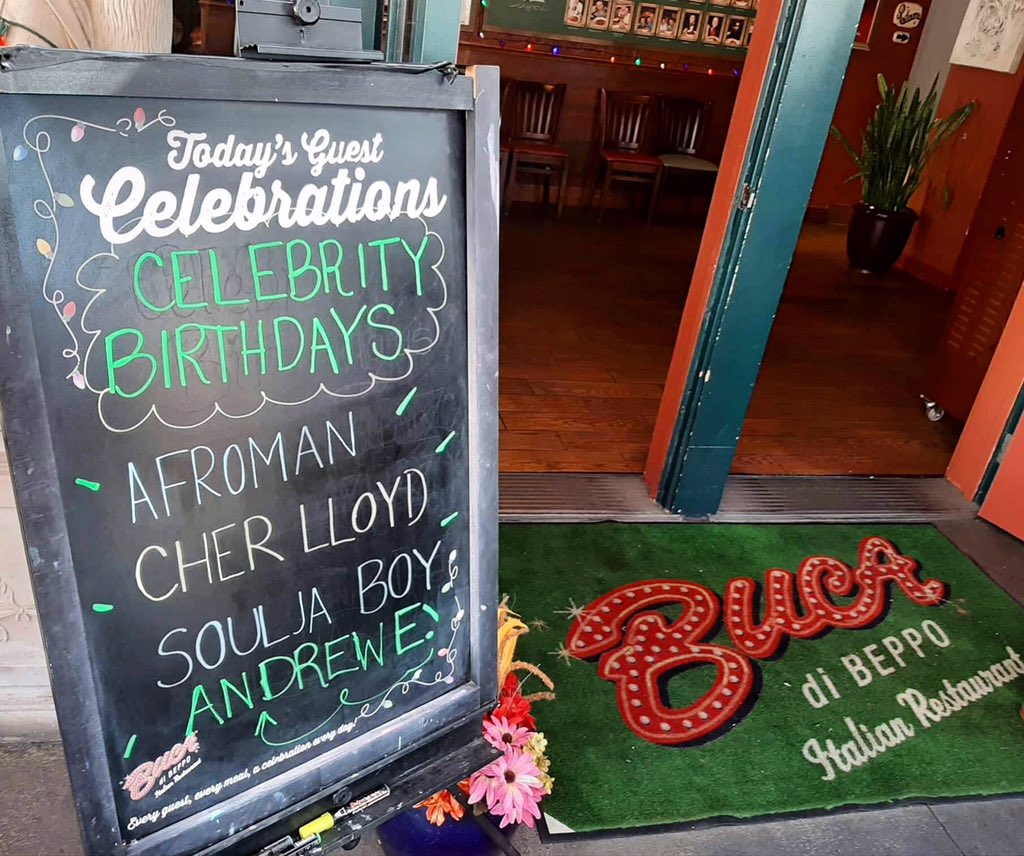 Today's Guest
Celebrations
CELEBRITY
BIRTHDAYS
AFROMAN
CHER LLOYD
SOULJA BOY
ANDREW E!
BUCA
di BEPPO
Italian Restaurant
Every guest, every meal, a celebration every day!
BUCA
di BEPPO
Italian Restaurant